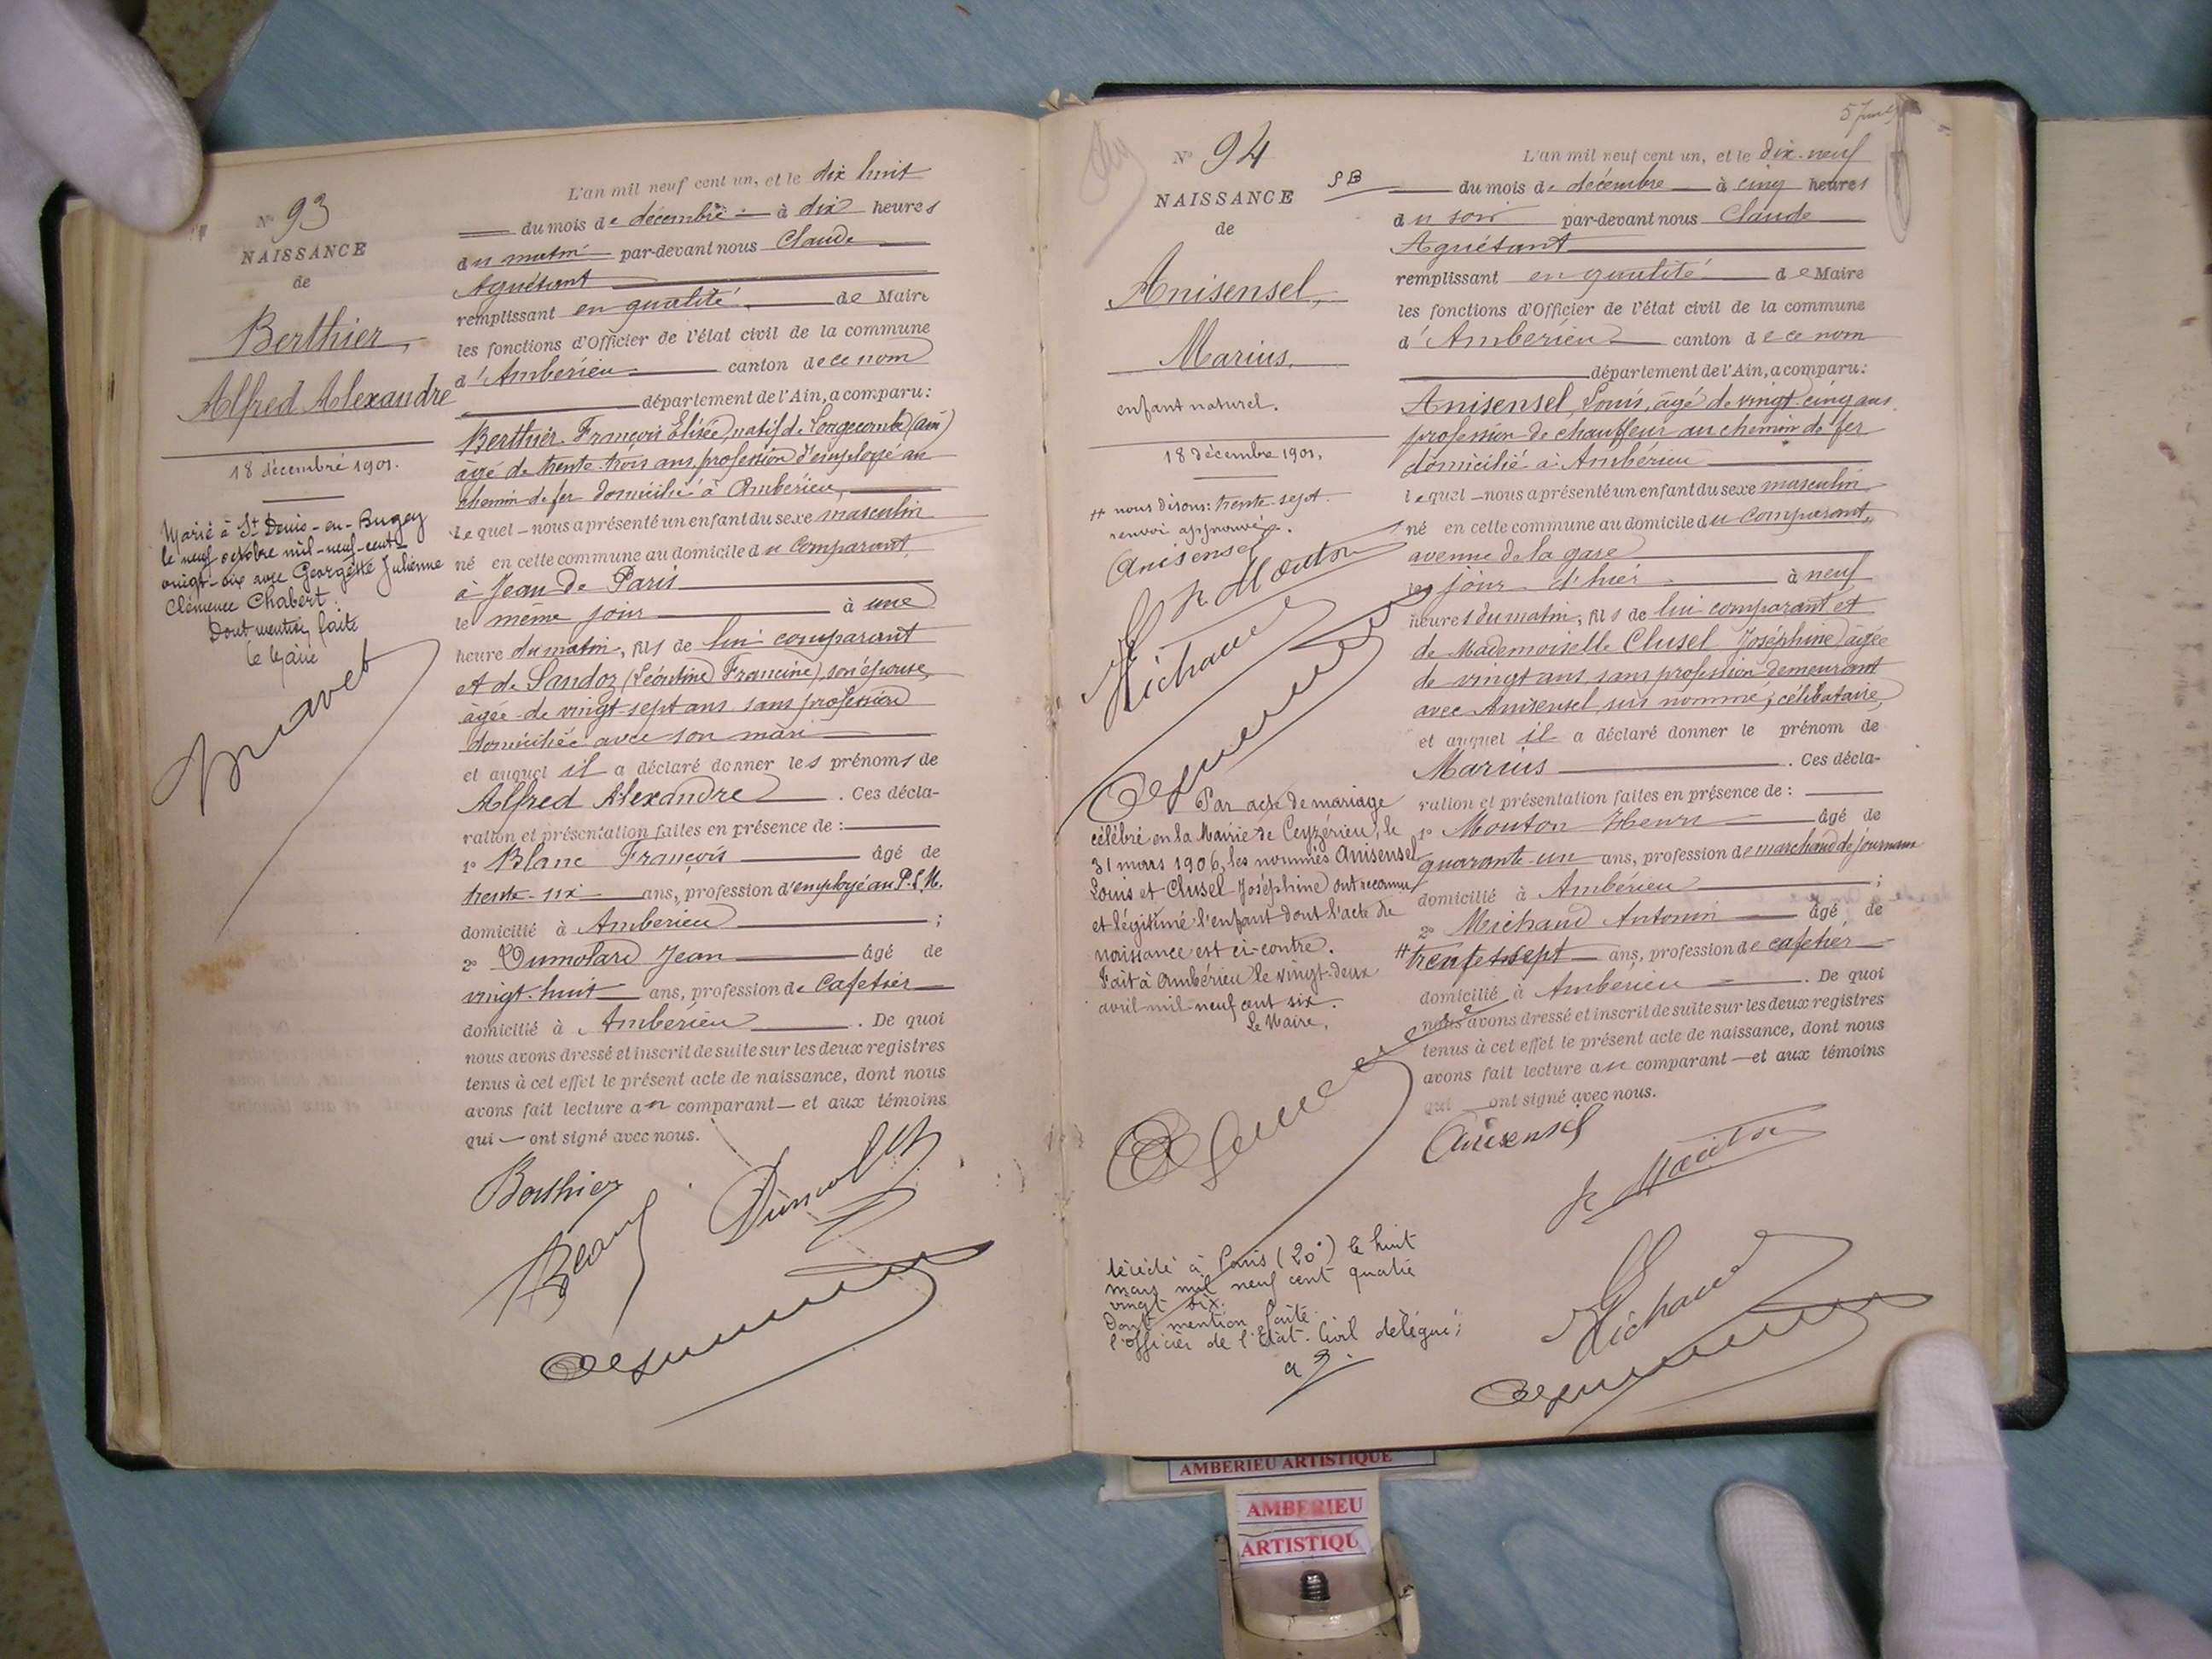 N° 93
NAISSANCE
de
Berthier
Alfred Alexandre
18 décembre 1901.
Marié à St Denis-en-Bugey
le neuf octobre mil-neuf-cent-
vingt-six avec Georgette Julienne
Clémence Chabert.
Dont mention faite
Le Maire
L'an mil neuf cent un, et le dix huit
du mois de décembre à dix heures
du matin par-devant nous Claude
Aguétant
remplissant en qualité de Maire
les fonctions d'Officier de l'état civil de la commune
d'Ambérieu canton de ce nom
département de l'Ain, a comparu:
Berthier François Elisée, natif de Longecombe (ain)
âgé de trente-trois ans, profession d'employé au
chemin de fer domicilié à Ambérieu,
lequel nous a présenté un enfant du sexe masculin
né en cette commune au domicile du comparant,
à Jean de Paris
le même jour à une
heure du matin, fils de lui comparant
et de Sandoz (Léontine Francine), son épouse,
âgée de vingt-sept ans sans profession
domiciliée avec son mari
et auquel il a déclaré donner les prénoms de
Alfred Alexandre. Ces décla-
ration et présentation faites en présence de :
1° Blanc François âgé de
trente-six ans, profession d'employé au P.L.M.
domicilié à Ambérieu ;
2° Dumolard Jean âgé de
vingt-huit ans, profession de Cafetier
domicilié à Ambérieu. De quoi
nous avons dressé et inscrit de suite sur les deux registres
tenus à cet effet le présent acte de naissance, dont nous
avons fait lecture au comparant et aux témoins
qui ont signé avec nous.
Berthier
Blanc
Dumolard
5 Juin
N° 94
NAISSANCE
de
Anisensel,
Marius.
enfant naturel.
18 décembre 1901.
# nous disons: trente-sept.
renvoi approuvé.
Anisensel
h Mouton
Michaud
Par acte de mariage
célébré en la Mairie de Ceyzérieu, le
31 mars 1906, les nommés Anisensel
Louis et Clusel Joséphine ont reconnu
et légitimé l'enfant dont l'acte de
naissance est ci-contre.
Fait à Ambérieu le vingt-deux
avril mil-neuf cent six.
Le Maire,
Décédé à Paris (20°) le huit
mars mil neuf cent quatre
vingt six.
Dont mention faite.
l'officier de l'Etat-Civil délégué;
SB
L'an mil neuf cent un, et le dix-neuf
du mois de décembre à cinq heures
du soir par-devant nous Claude
Aguétant
remplissant en qualité de Maire
les fonctions d'Officier de l'état civil de la commune
d'Ambérieu canton de ce nom
département de l'Ain, a comparu:
Anisensel, Louis, âgé de vingt-cinq ans
profession de chauffeur au chemin de fer
domicilié à Ambérieu
lequel nous a présenté un enfant du sexe masculin
né en cette commune au domicile du comparant,
avenue de la gare
jour d'hier à neuf
heures du matin, fils de lui comparant et
de Mademoiselle Clusel Joséphine âgée
de vingt ans sans profession demeurant
avec Anisensel, sus nommé, célibataire,
et auquel il a déclaré donner le prénom de
Marius. Ces décla-
ration et présentation faites en présence de :
1° Mouton Henri âgé de
quarante-un ans, profession de marchand de journaux
domicilié à Ambérieu ;
2° Michaud Antonin âgé de
# trente-sept ans, profession de cafetier
domicilié à Ambérieu. De quoi
nous avons dressé et inscrit de suite sur les deux registres
tenus à cet effet le présent acte de naissance, dont nous
avons fait lecture au comparant et aux témoins
qui ont signé avec nous.
Anisensel
h Mouton
Michaud
AMBERIEU ARTISTIQUE
AMBERIEU
ARTISTIQU